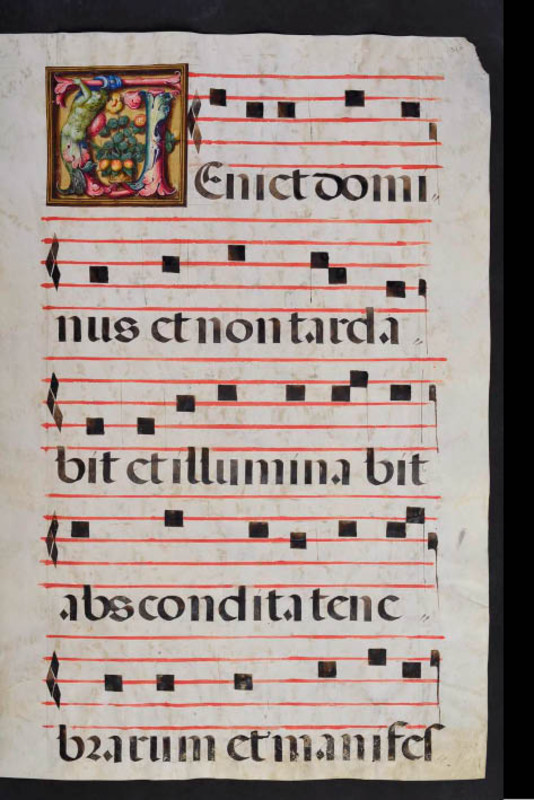 VEnict domi
nus et non tarda
bit et illumina bit
abscondita tene
brarum et manifes